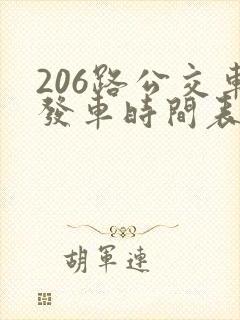 206路公交車
發車時間表
胡軍連